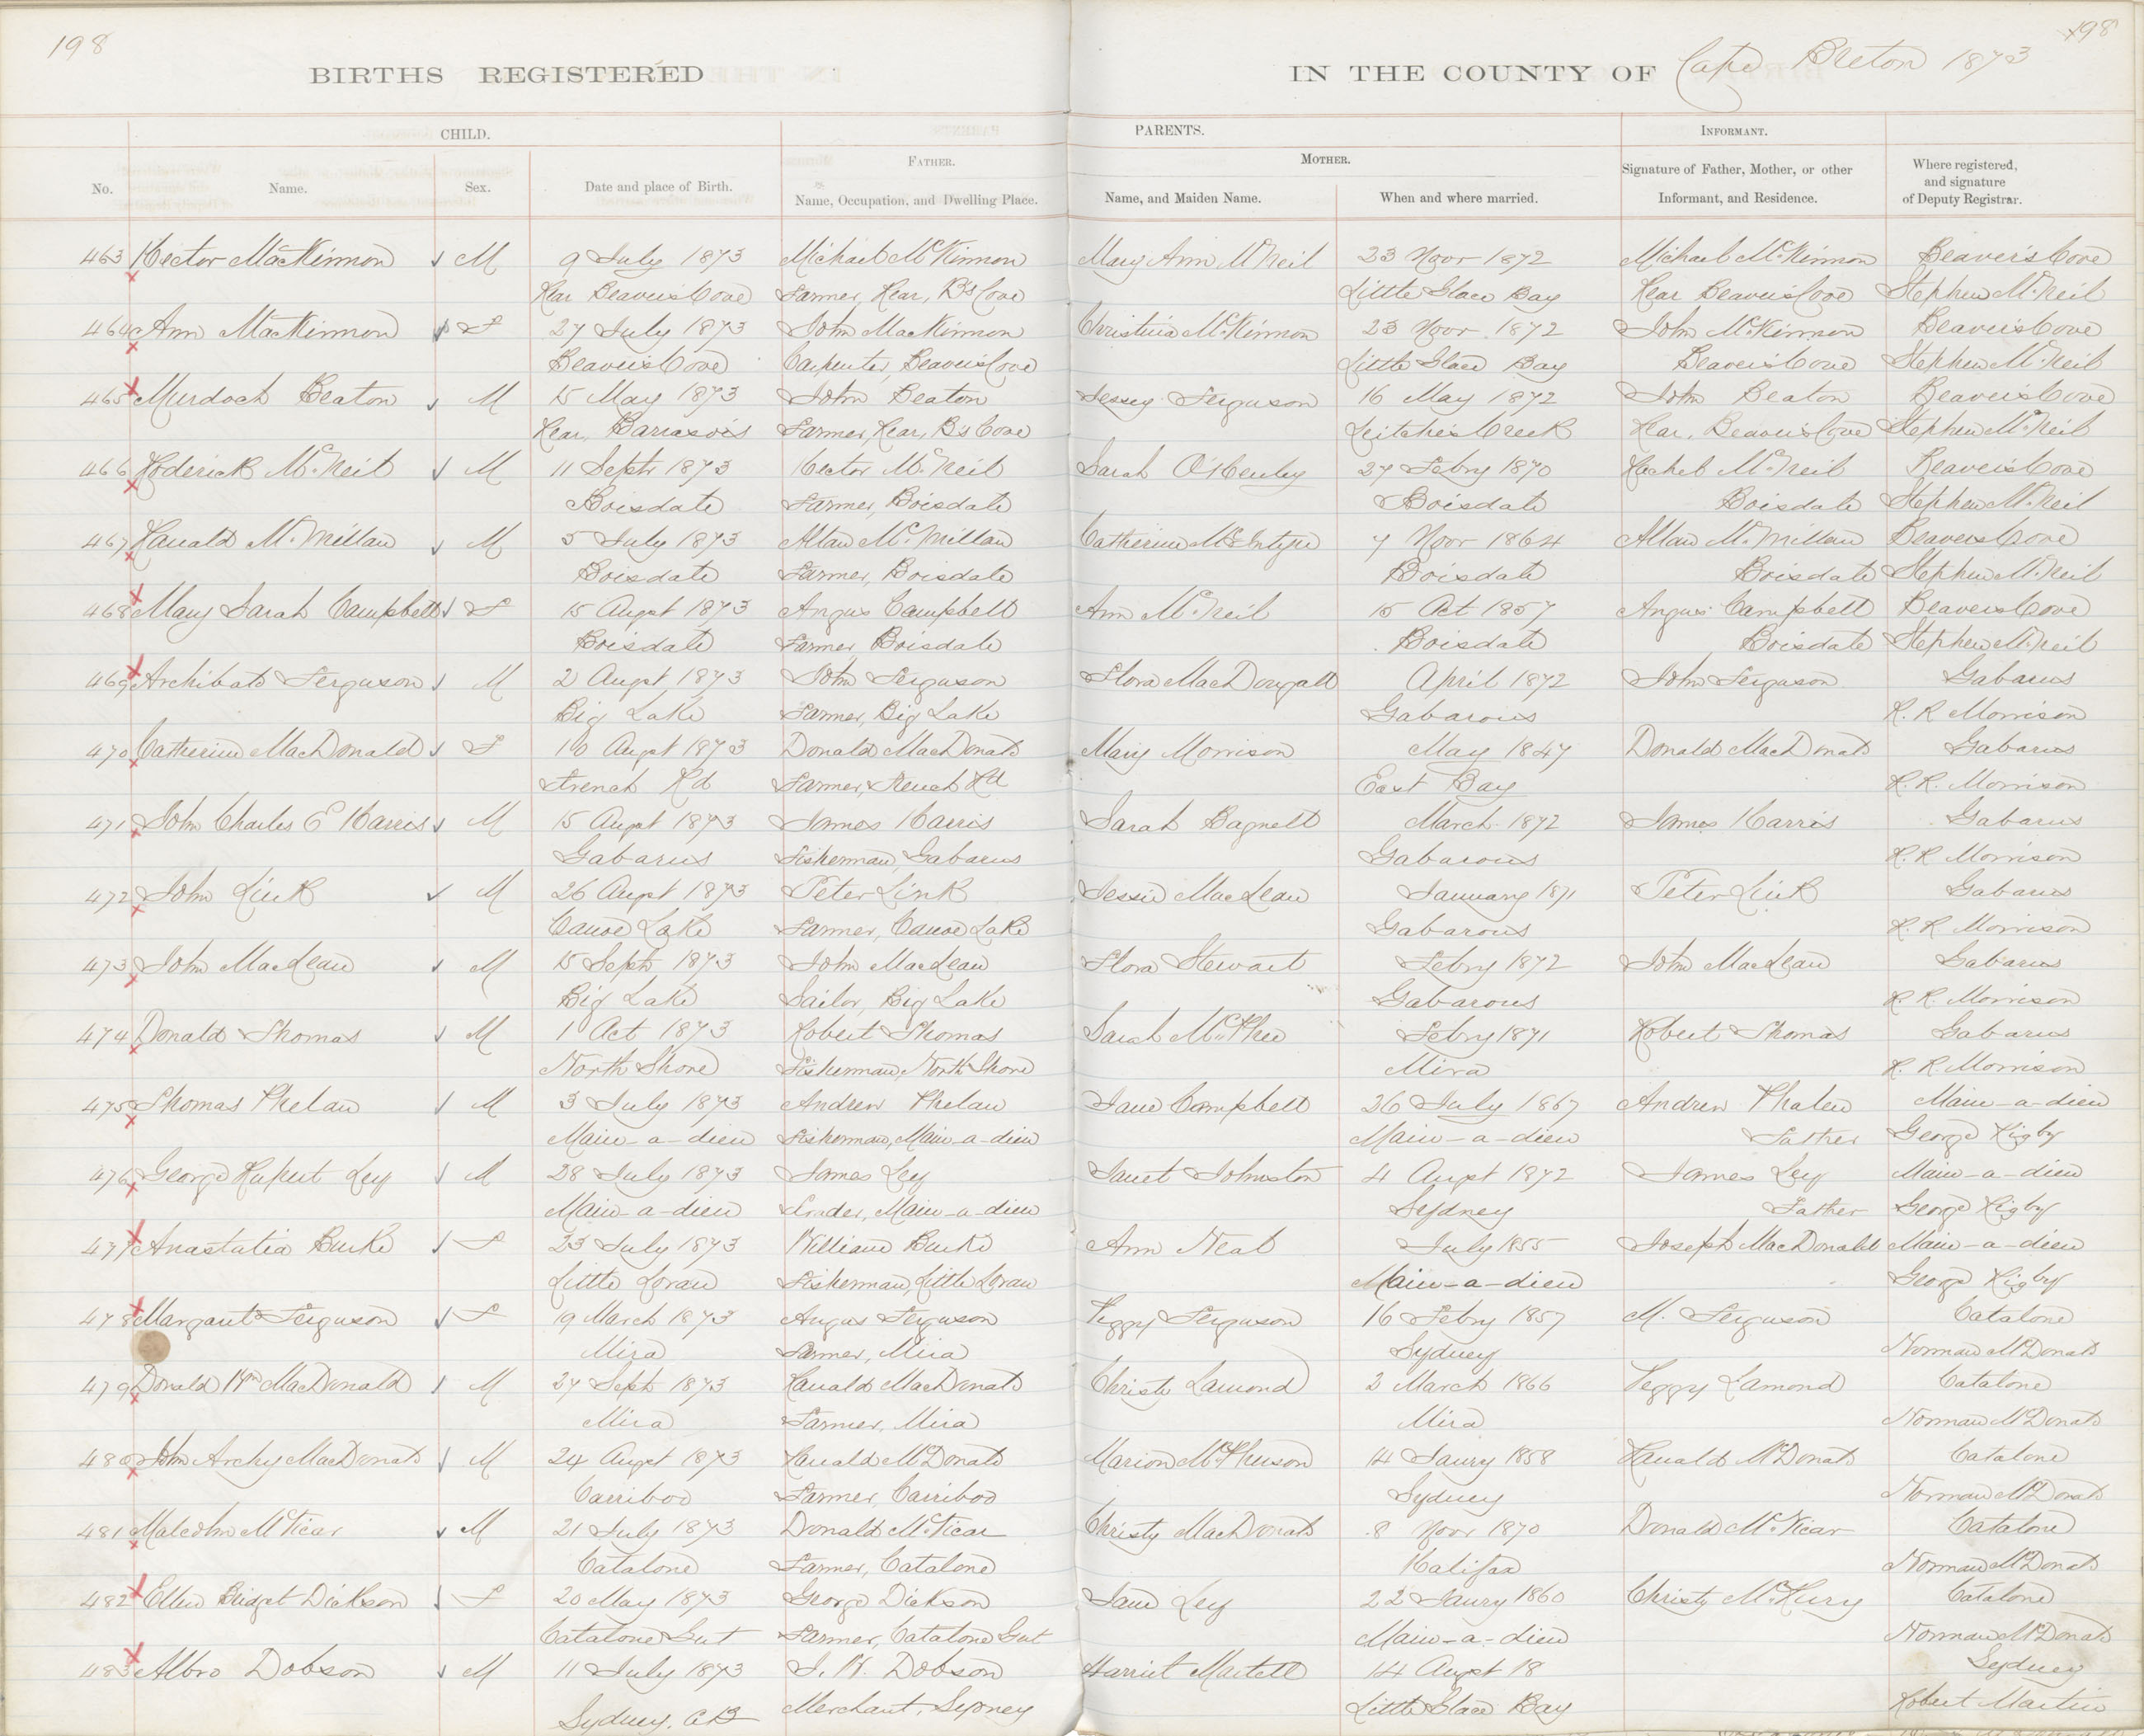 198
198
BIRTHS REGISTERED
IN THE COUNTY OF Cape Breton 1873
CHILD.
PARENTS.
INFORMANT.
FATHER.
MOTHER.
No.
Name.
Sex.
Date and place of Birth.
Name, Occupation, and Dwelling Place.
Name, and Maiden Name.
When and where married.
Signature of Father, Mother, or other
Informant, and Residence.
Where registered,
and signature
of Deputy Registrar.
463 Hector MacKinnon M 9 July 1873 Michael McKinnon Mary Ann McNeil 23 Novr 1872 Michael McKinnon Beaver's Cove
Rear Beaver's Cove Farmer, Rear, B's Cove Little Glace Bay Rear Beaver's Cove Stephen McNeil
464 Ann MacKinnon F 27 July 1873 John MacKinnon Christina McKinnon 23 Novr 1872 John McKinnon Beaver's Cove
Beaver's Cove Carpenter, Beaver's Cove Little Glace Bay Beaver's Cove Stephen McNeil
465 Murdoch Beaton M 15 May 1873 John Beaton Jessey Ferguson 16 May 1872 John Beaton Beaver's Cove
Rear, Barrasois Farmer, Rear, B's Cove Leitche's Creek Rear, Beaver's Cove Stephen McNeil
466 Roderick McNeil M 11 Septr 1873 Hector McNeil Sarah O'Henley 27 Febry 1870 Rachel McNeil Beaver's Cove
Boisdale Farmer, Boisdale Boisdale Boisdale Stephen McNeil
467 Ranald McMillan M 5 July 1873 Allan McMillan Catherine McIntyre 7 Novr 1864 Allan McMillan Beaver's Cove
Boisdale Farmer, Boisdale Boisdale Boisdale Stephen McNeil
468 Mary Sarah Campbell F 15 Augst 1873 Angus Campbell Ann McNeil 15 Oct 1857 Angus Campbell Beaver's Cove
Boisdale Farmer Boisdale Boisdale Boisdale Stephen McNeil
469 Archibald Ferguson M 2 Augst 1873 John Ferguson Flora MacDougall April 1872 John Ferguson Gabarus
Big Lake Farmer, Big Lake Gabarous R. R Morrison
470 Catherine MacDonald F 10 Augst 1873 Donald MacDonald Mary Morrison May 1847 Donald MacDonald Gabarus
French Rd Farmer, French Rd East Bay R. R. Morrison
471 John Charles E Harris M 15 Augst 1873 James Harris Sarah Bagnell March 1872 James Harris Gabarus
Gabarus Fisherman, Gabarus Gabarous R. R Morrison
472 John Link M 26 Augst 1873 Peter Link Jessie MacLean January 1871 Peter Link Gabarus
Canoe Lake Farmer, Canoe Lake Gabarous R. R Morrison
473 John MacLean M 15 Septr 1873 John MacLean Flora Stewart Febry 1872 John MacLean Gabarus
Big Lake Sailor, Big Lake Gabarous R. R. Morrison
474 Donald Thomas M 1 Oct 1873 Robert Thomas Sarah McPhee Febry 1871 Robert Thomas Gabarus
North Shore Fisherman, North Shore Mira R. R. Morrison
475 Thomas Phelan M 3 July 1873 Andrew Phelan Jane Campbell 26 July 1867 Andrew Phalen Main-a-dieu
Main-a-dieu Fisherman, Main-a-dieu Main-a-dieu Father George Rigby
476 George Rupert Ley M 28 July 1873 James Ley Janet Johnston 4 Augst 1872 James Ley Main-a-dieu
Main-a-dieu Trader, Main-a-dieu Sydney Father George Rigby
477 Anastatia Burke F 23 July 1873 William Burke Ann Neal July 1855 Joseph MacDonald Main-a-dieu
Little Loran Fisherman, Little Loran Main-a-dieu George Rigby
478 Margaret Ferguson F 19 March 1873 Angus Ferguson Peggy Ferguson 16 Febry 1857 M. Ferguson Catalone
Mira Farmer, Mira Sydney Norman McDonald
479 Donald Wm MacDonald M 27 Septr 1873 Ranald MacDonald Christy Lamond 2 March 1866 Peggy Lamond Catalone
Mira Farmer, Mira Mira Norman McDonald
480 John Archy MacDonald M 24 Augst 1873 Ranald McDonald Marion McPherson 14 Janry 1858 Ranald McDonald Catalone
Carriboo Farmer, Carriboo Sydney Norman McDonald
481 Malcolm McVicar M 21 July 1873 Donald McVicar Christy MacDonald 8 Novr 1870 Donald McVicar Catalone
Catalone Farmer, Catalone Halifax Norman McDonald
482 Ellen Bridget Dickson F 20 May 1873 George Dickson Jane Ley 22 Janry 1860 Christy Catalone
Catalone Gut Farmer, Catalone Gut Main-a-dieu Norman McDonald
483 Albro Dobson M 11 July 1873 J. W. Dobson Harriet Martell 14 Augst 18 Sydney
Sydney, CB Merchant, Sydney Little Glace Bay Robert Martin